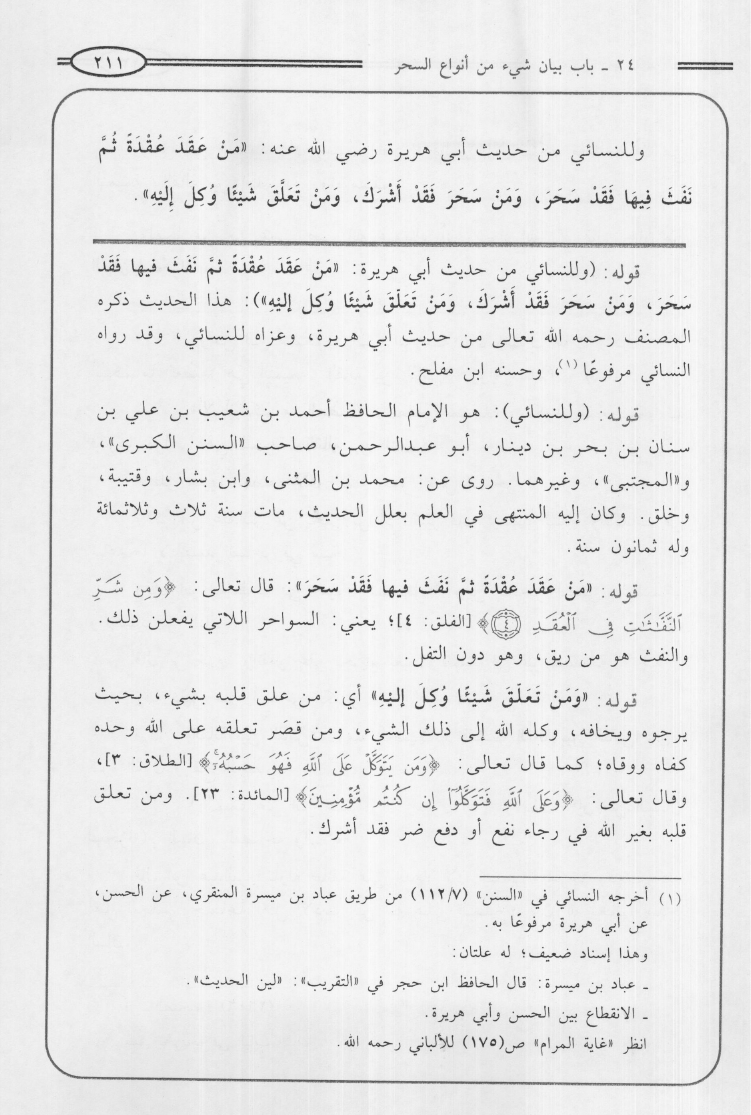 ٢٤ ـ باب بيان شيء من أنواع السحر
٢١١
وللنسائي من حديث أبي هريرة رضي الله عنه: «مَنْ عَقَدَ عُقْدَةً ثُمَّ
نَفَثَ فِيهَا فَقَدْ سَحَرَ، وَمَنْ سَحَرَ فَقَدْ أَشْرَكَ، وَمَنْ تَعَلَّقَ شَيْئًا وُكِلَ إِلَيْهِ».
قوله: (وللنسائي من حديث أبي هريرة: «مَنْ عَقَدَ عُقْدَةً ثمَّ نَفَثَ فيها فَقَدْ
سَحَرَ، وَمَنْ سَحَرَ فَقَدْ أَشْرَكَ، وَمَنْ تَعَلّقَ شَيْئًا وُكِلَ إليْهِ»): هذا الحديث ذكره
المصنف رحمه الله تعالى من حديث أبي هريرة، وعزاه للنسائي، وقد رواه
النسائي مرفوعًا(١)، وحسنه ابن مفلح.
قوله: (وللنسائي): هو الإمام الحافظ أحمد بن شعيب بن علي بن
سنان بن بحر بن دينار، أبو عبدالرحمن، صاحب «السنن الكبرى»،
و«المجتبى»، وغيرهما. روى عن: محمد بن المثنى، وابن بشار، وقتيبة،
وخلق. وكان إليه المنتهى في العلم بعلل الحديث، مات سنة ثلاث وثلاثمائة
وله ثمانون سنة.
قوله: «مَنْ عَقَدَ عُقْدَةً ثمَّ نَفَثَ فيها فَقَدْ سَحَرَ»: قال تعالى: ﴿وَمِن شَرِّ
ٱلنَّفَّـٰثَـٰتِ فِى ٱلْعُقَدِ ۝٤﴾ [الفلق: ٤]؛ يعني: السواحر اللاتي يفعلن ذلك.
والنفث هو من ريق، وهو دون التفل.
قوله: «وَمَنْ تَعَلّقَ شَيْئًا وُكِلَ إليْهِ» أي: من علق قلبه بشيء، بحيث
يرجوه ويخافه، وكله الله إلى ذلك الشيء، ومن قصَر تعلقه على الله وحده
كفاه ووقاه؛ كما قال تعالى: ﴿وَمَن يَتَوَكَّلْ عَلَى ٱللَّهِ فَهُوَ حَسْبُهُۥٓ ۚ﴾ [الطلاق: ٣]،
وقال تعالى: ﴿وَعَلَى ٱللَّهِ فَتَوَكَّلُوٓا۟ إِن كُنتُم مُّؤْمِنِينَ﴾ [المائدة: ٢٣]. ومن تعلق
قلبه بغير الله في رجاء نفع أو دفع ضر فقد أشرك.
(١) أخرجه النسائي في «السنن» (١١٢/٧) من طريق عباد بن ميسرة المنقري، عن الحسن،
عن أبي هريرة مرفوعًا به.
وهذا إسناد ضعيف؛ له علتان:
ـ عباد بن ميسرة: قال الحافظ ابن حجر في «التقريب»: «لين الحديث».
ـ الانقطاع بين الحسن وأبي هريرة.
انظر «غاية المرام» ص(١٧٥) للألباني رحمه الله.